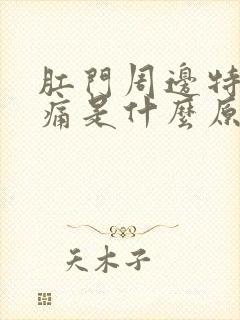 肛門周邊特
痛是什麼原
天木子